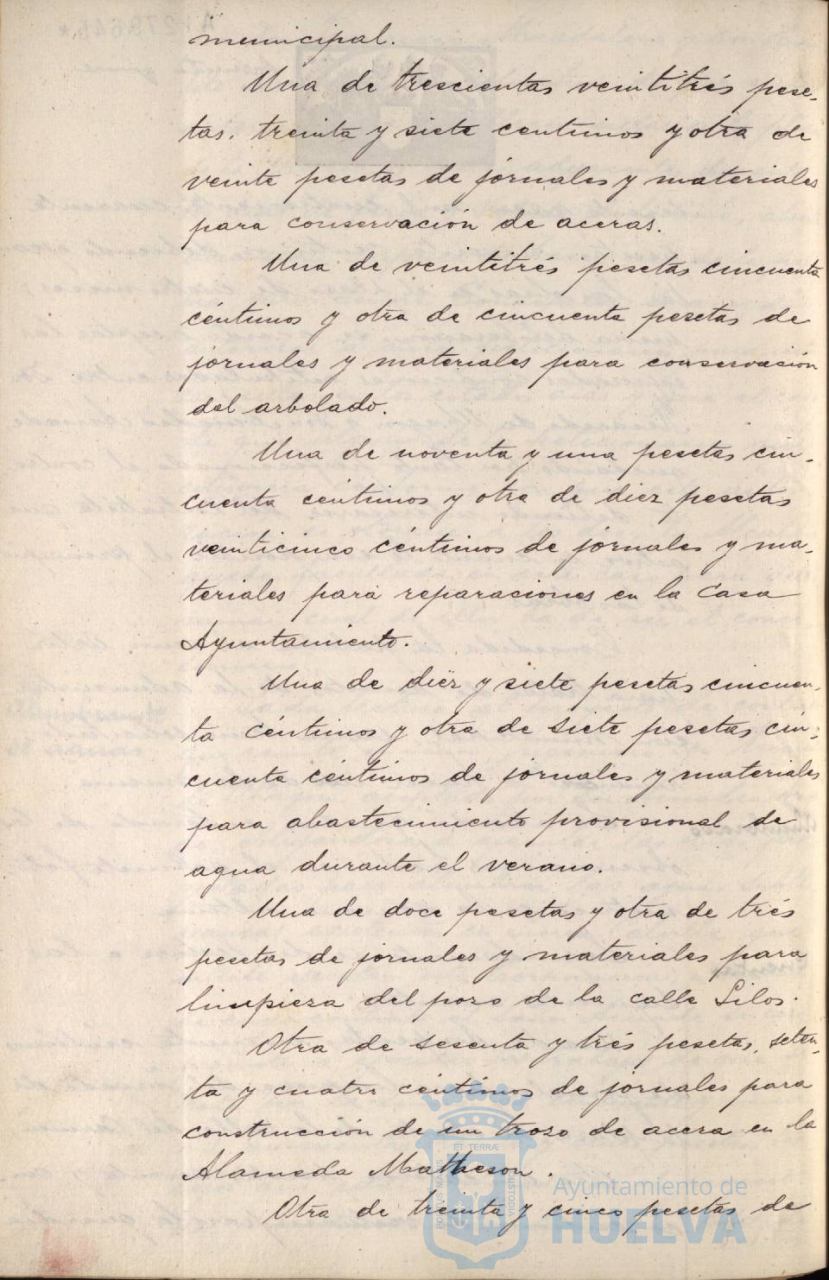 municipal.
Una de trescientas veintitrés pese-
tas, treinta y siete centimos y otra de
veinte pesetas de jornales y materiales
para conservación de aceras.
Una de veintitrés pesetas cincuenta
céntimos y otra de cincuenta pesetas de
jornales y materiales para conservación
del arbolado.
Una de noventa y una pesetas cin-
cuenta céntimos y otra de diez pesetas
veinticinco céntimos de jornales y ma-
teriales para reparaciones en la Casa
Ayuntamiento.
Una de diéz y siete pesetas cincuen-
ta céntimos y otra de siete pesetas cin-
cuenta céntimos de jornales y materiales
para abastecimiento provisional de
agua durante el verano.
Una de doce pesetas y otra de trés
pesetas de jornales y materiales para
limpieza del pozo de la calle Silos.
Otra de sesenta y trés pesetas, seten-
ta y cuatro céntimos de jornales para
construcción de un trozo de acera en la
Alameda Matheson.
Otra de treinta y cinco pesetas de
Ayuntamiento de
HUELVA